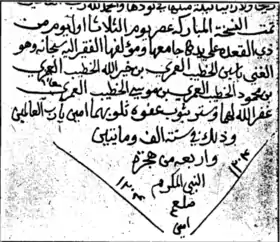 تمت النسخة المباركة عصر يوم الثلاثا اول يوم من
ذي القعدة على يد جامعها ومؤلفها الفقير اليه سبحانه وهو
الغني ياسين الخطيب العمري بن خير الله الخطيب العمري
بن محمود الخطيب العمري بن موسى الخطيب العمري
غفر الله لهم وستر عيوبهم امين يارب العالمين
وذلك سنة الف وماتين
واربعه من هجرة
النبي المكرم
صلعم
امين
١٢٠٤
١٢٠٤